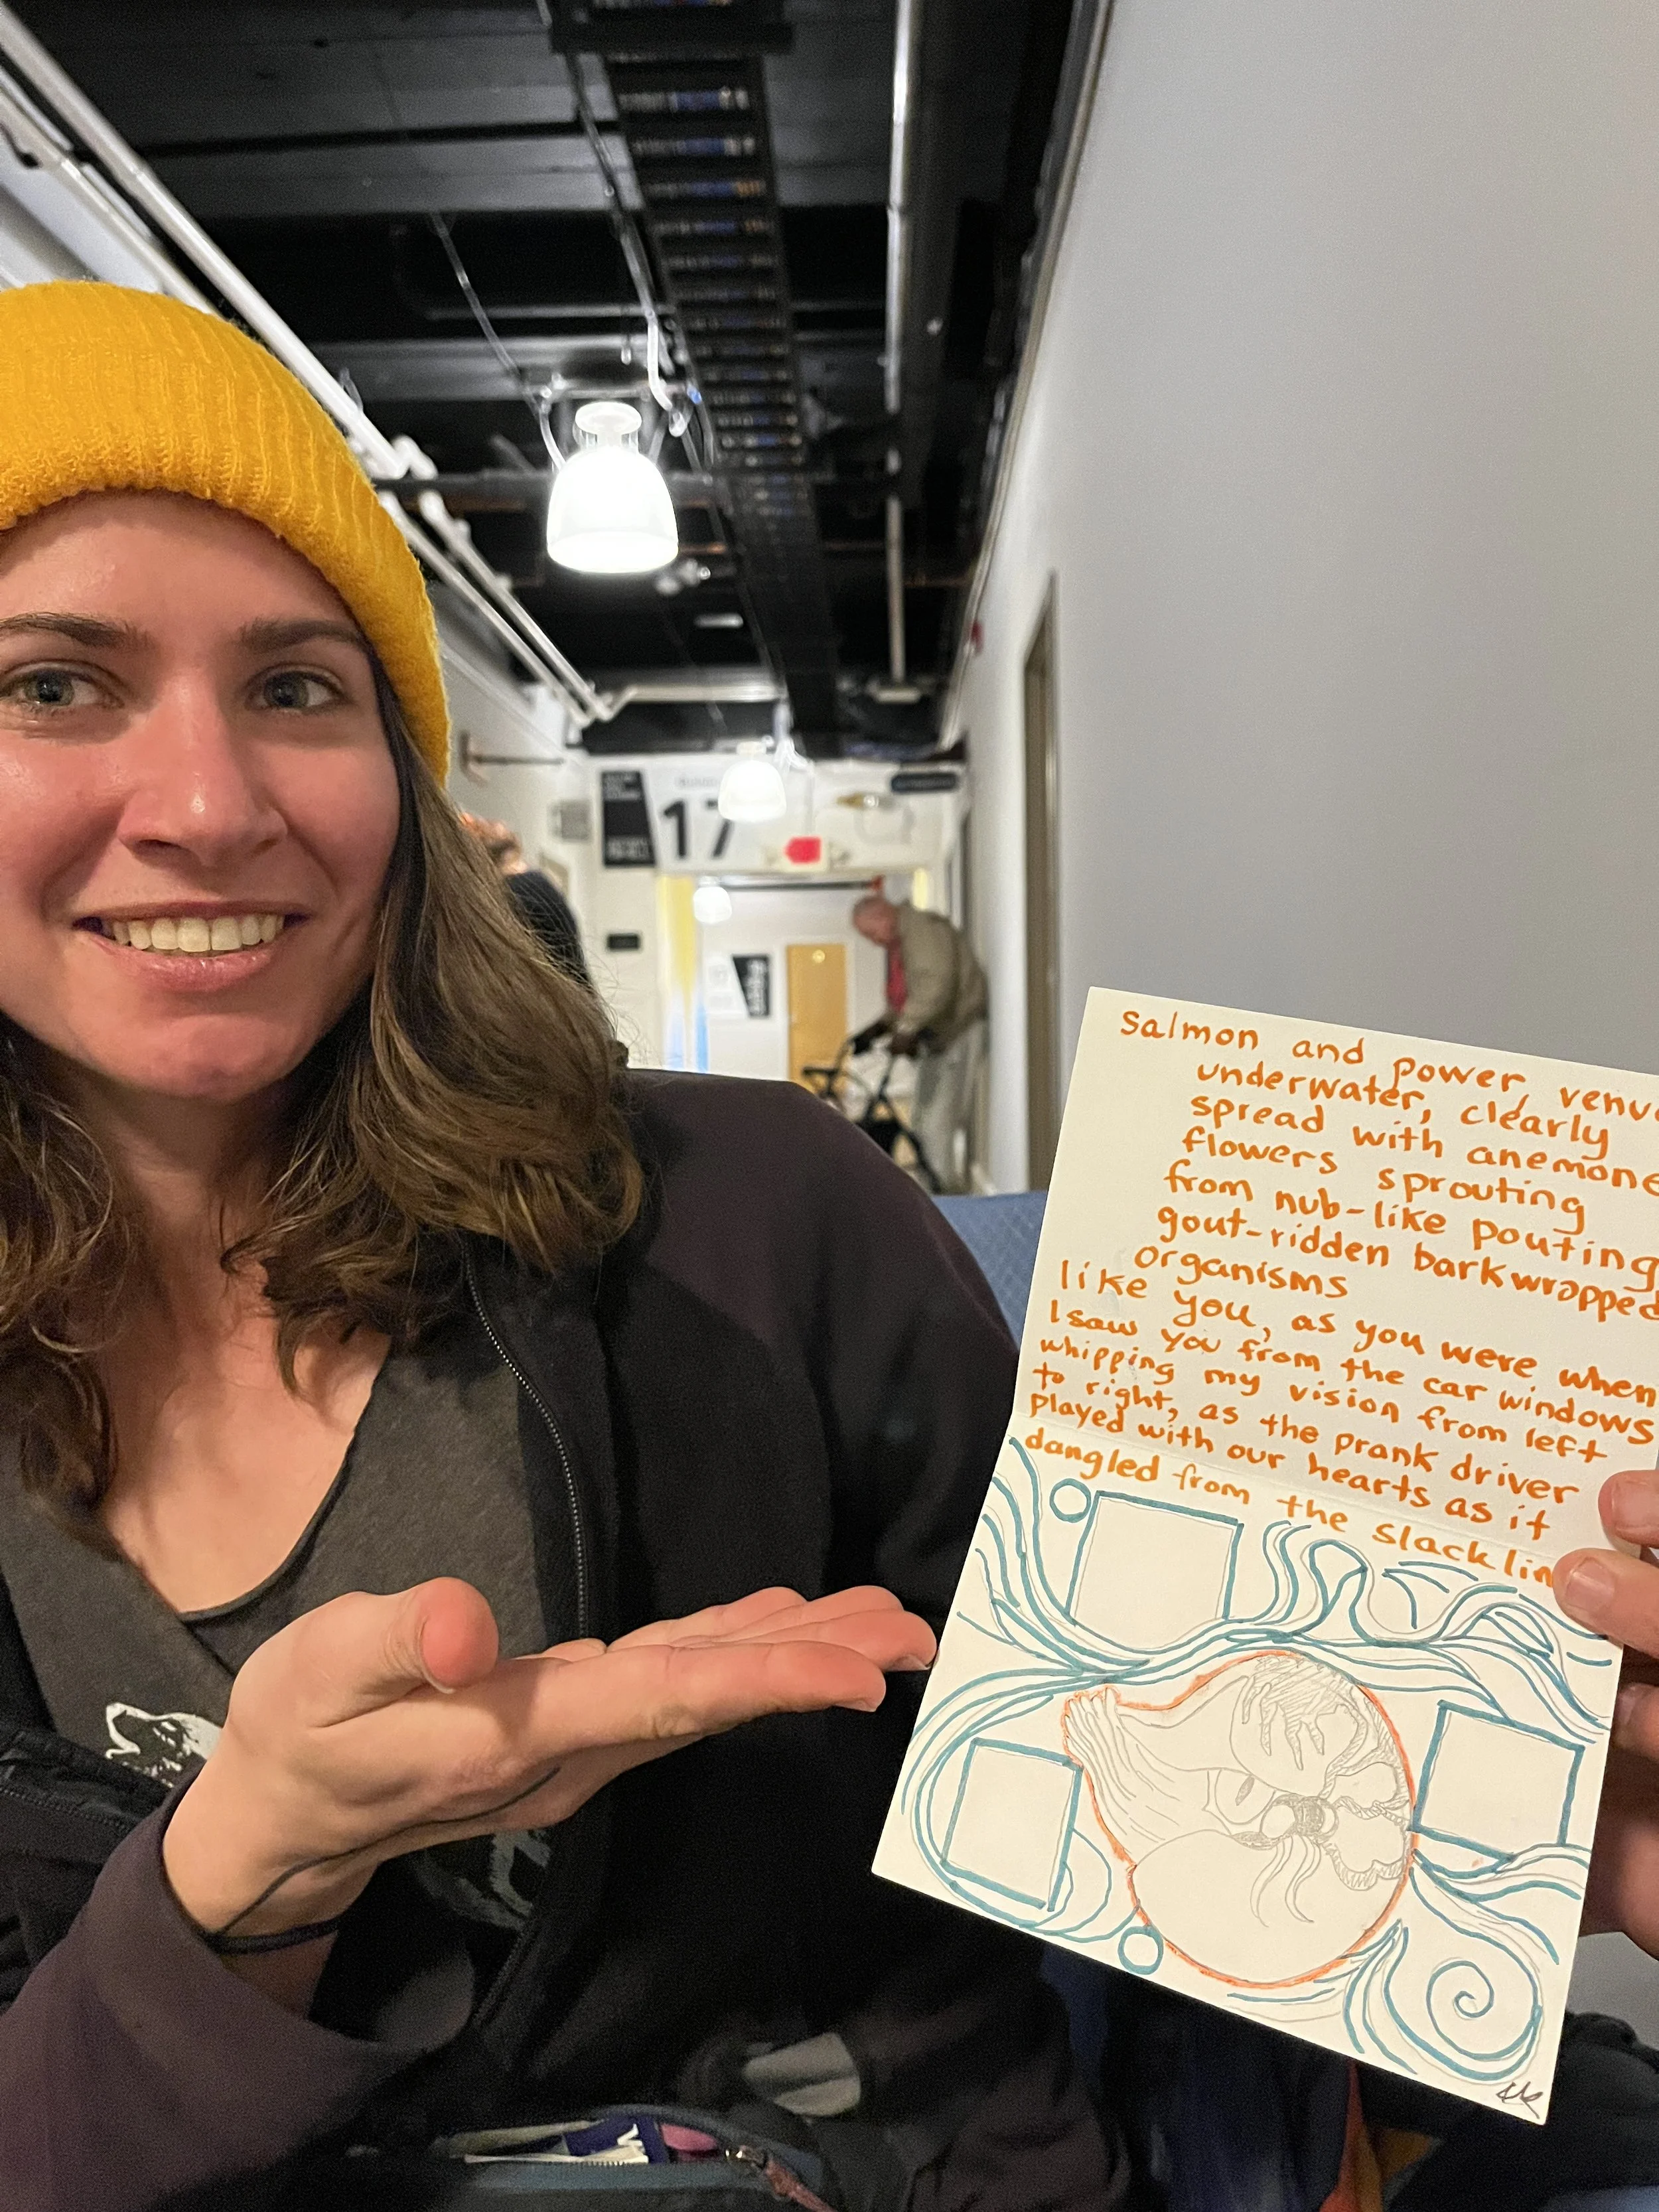 17
Salmon and power,
underwater, clearly
spread with anemone
flowers sprouting
from nub-like pouting
gout-ridden barkwrapped
organisms
like you, as you were when
I saw you from the car windows
whipping my vision from left
to right, as the prank driver
played with our hearts as it
dangled from the slack